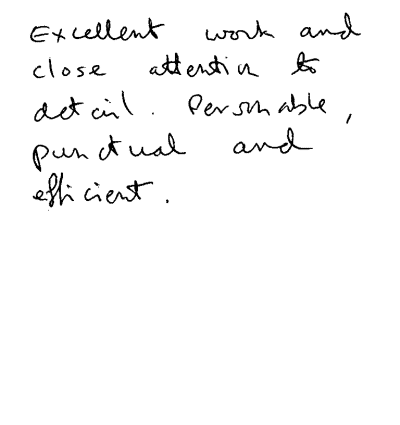 Excellent work and
close attention to
detail. Personable,
punctual and
efficient.